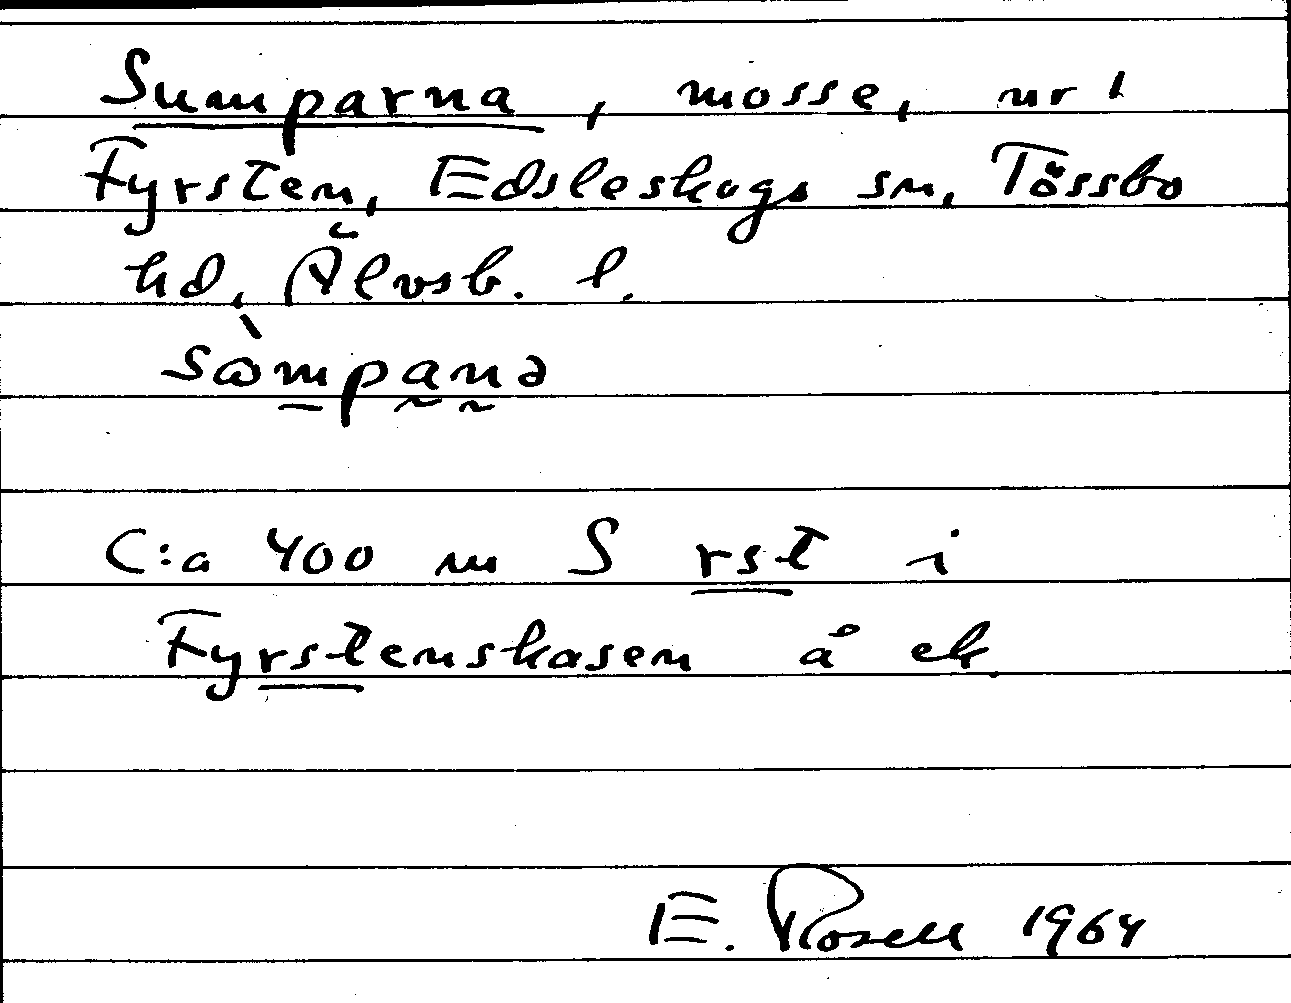 Sumparna, mosse, nr 1
Fyrsten, Edsleskogs sn, Tössbo
hd, Älvsb. l.
sɷ̀mpanə
C:a 400 m S rst i
Fyrstenskasen å ek.
E. Rosell 1964